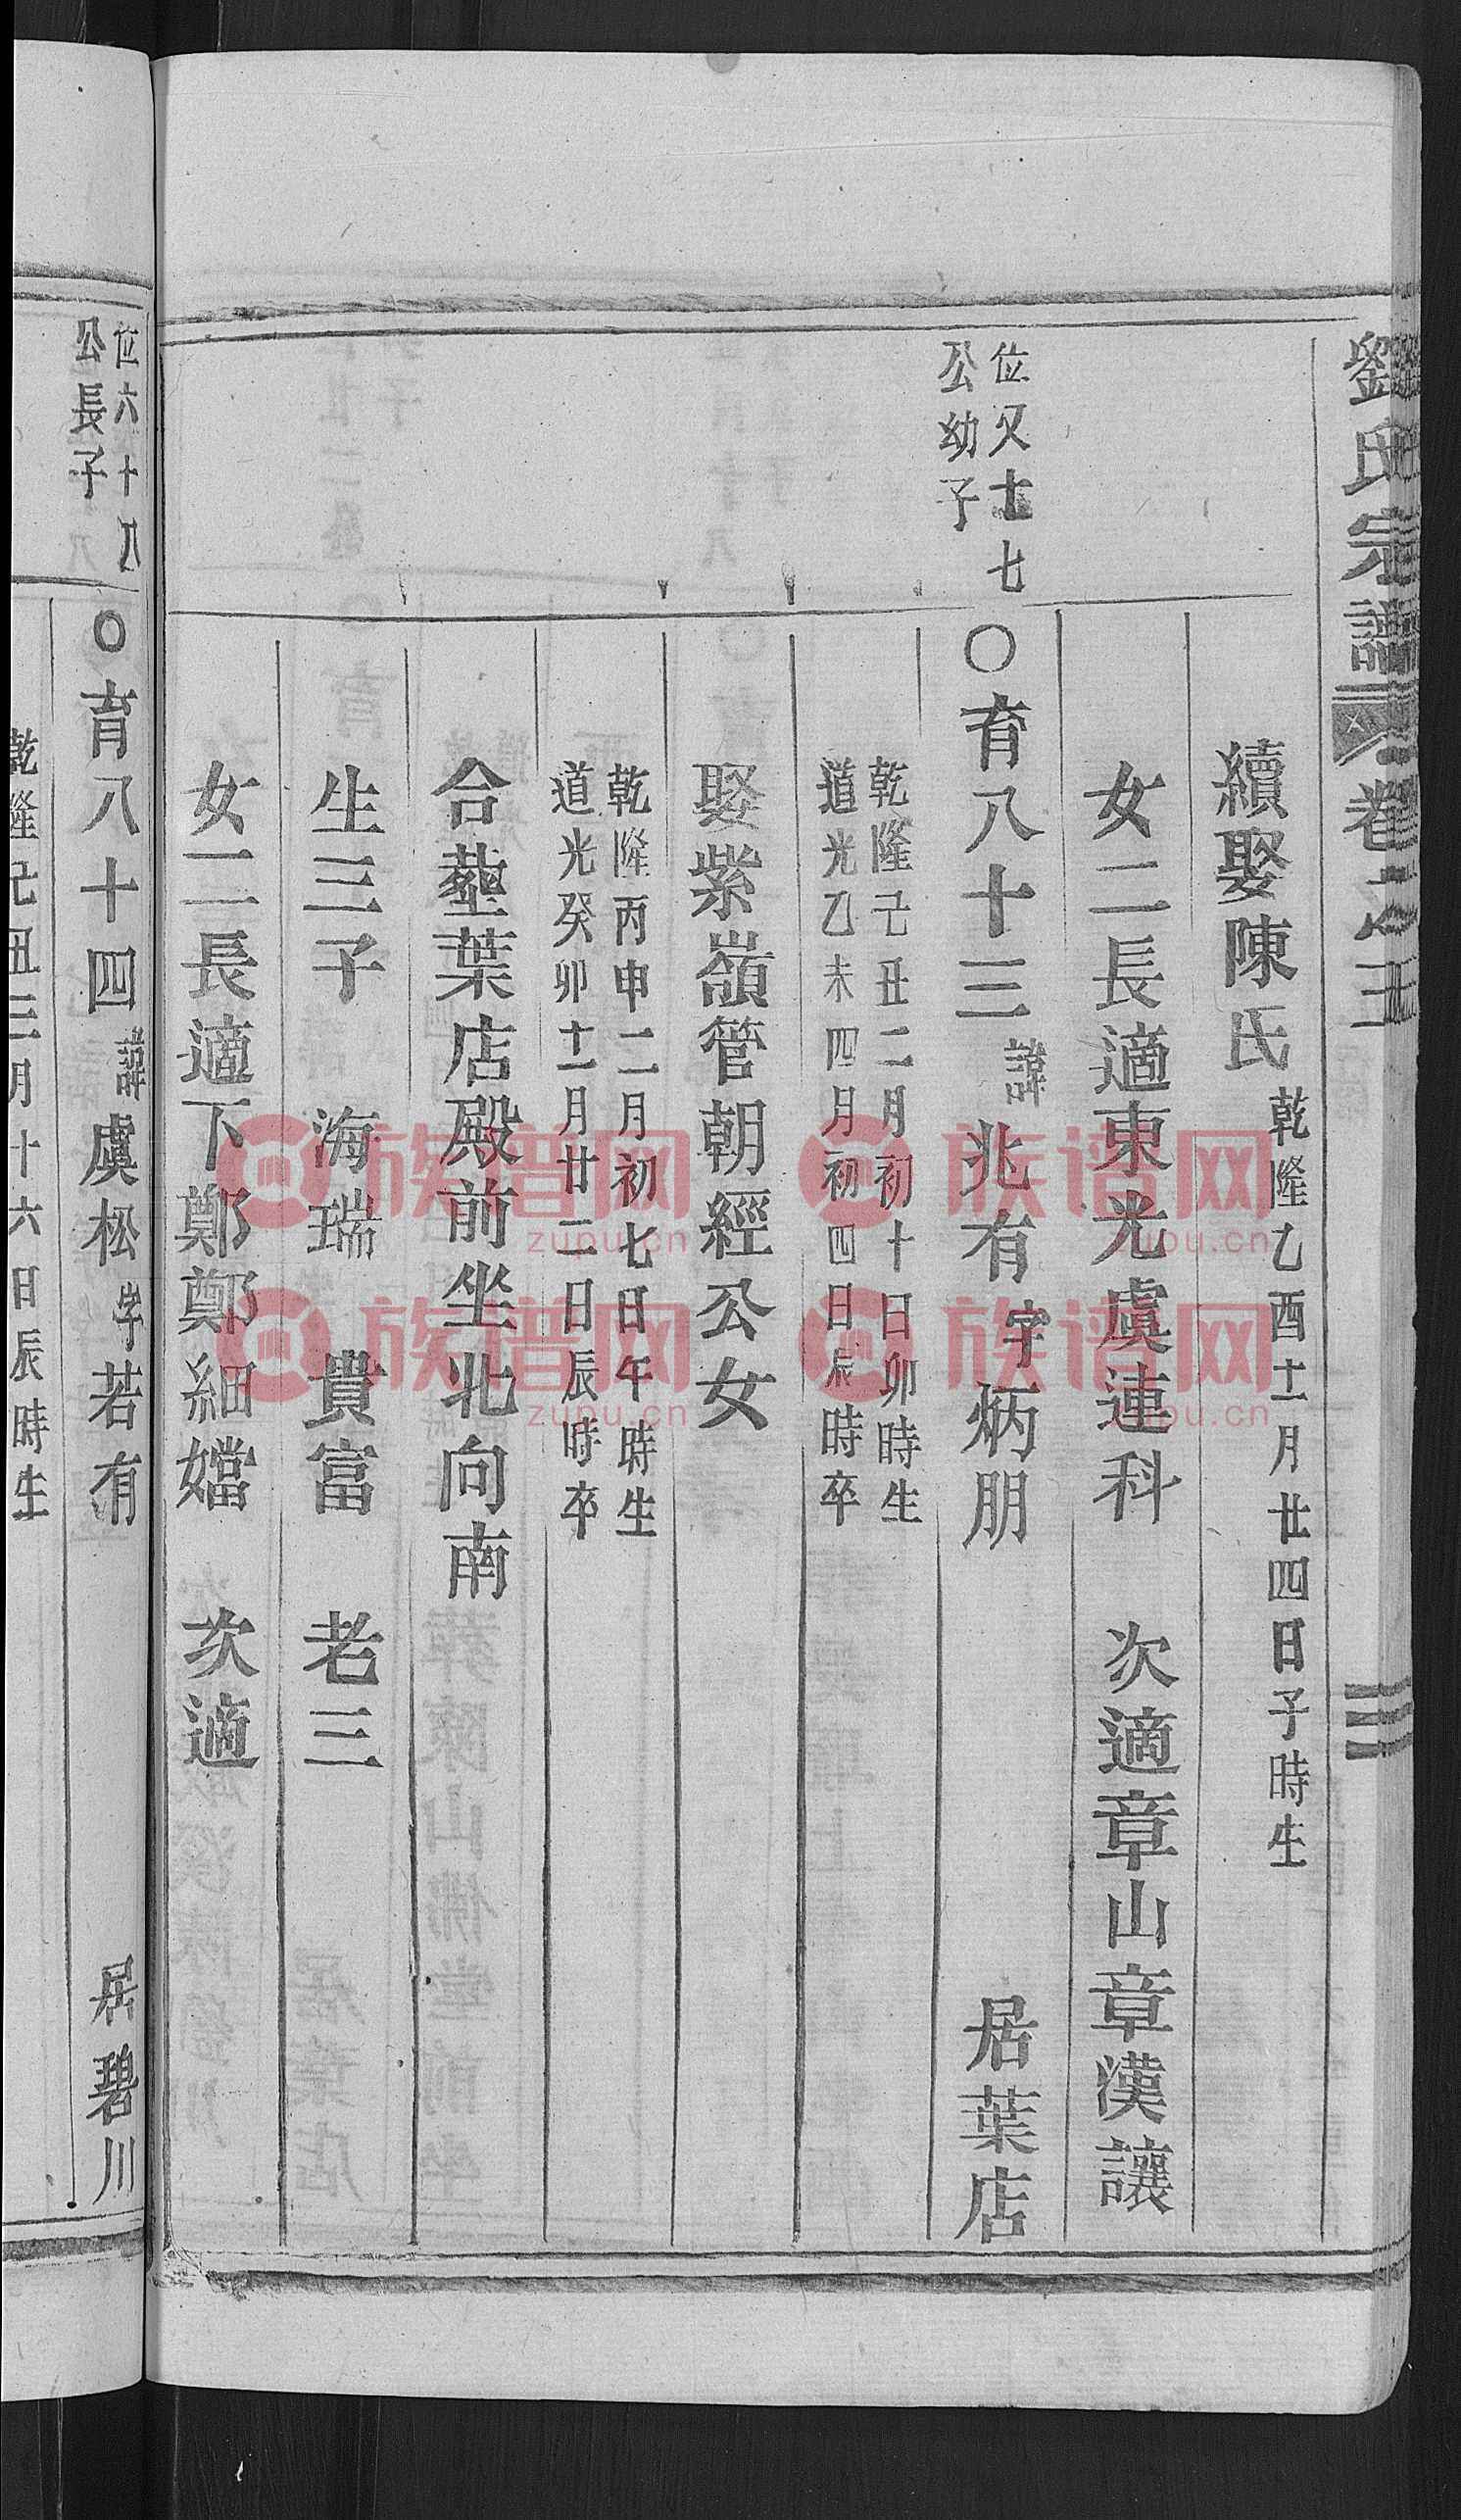 劉氏宗譜
卷之五
三
續娶陳氏
乾隆乙酉十一月廿四日子時生
女二長適東光虞連科 次適章山章漢讓
位又十七
公幼子
〇育八十三諱兆有字炳朋 居葉店
乾隆己丑二月初十日卯時生
道光乙未四月初四日辰時卒
娶紫嶺管朝經公女
乾隆丙申二月初七日午時生
道光癸卯十一月廿二日辰時卒
合塟葉店殿前坐北向南
生三子 海瑞 貴富 老三
女二長適下鄭鄭細嬑 次適
位六十八
公長子
〇育八十四諱虞松字若有 居碧川
乾隆己丑三月十六日辰時生
族谱网
zupu.cn
族谱网
zupu.cn
族谱网
zupu.cn
族谱网
zupu.cn